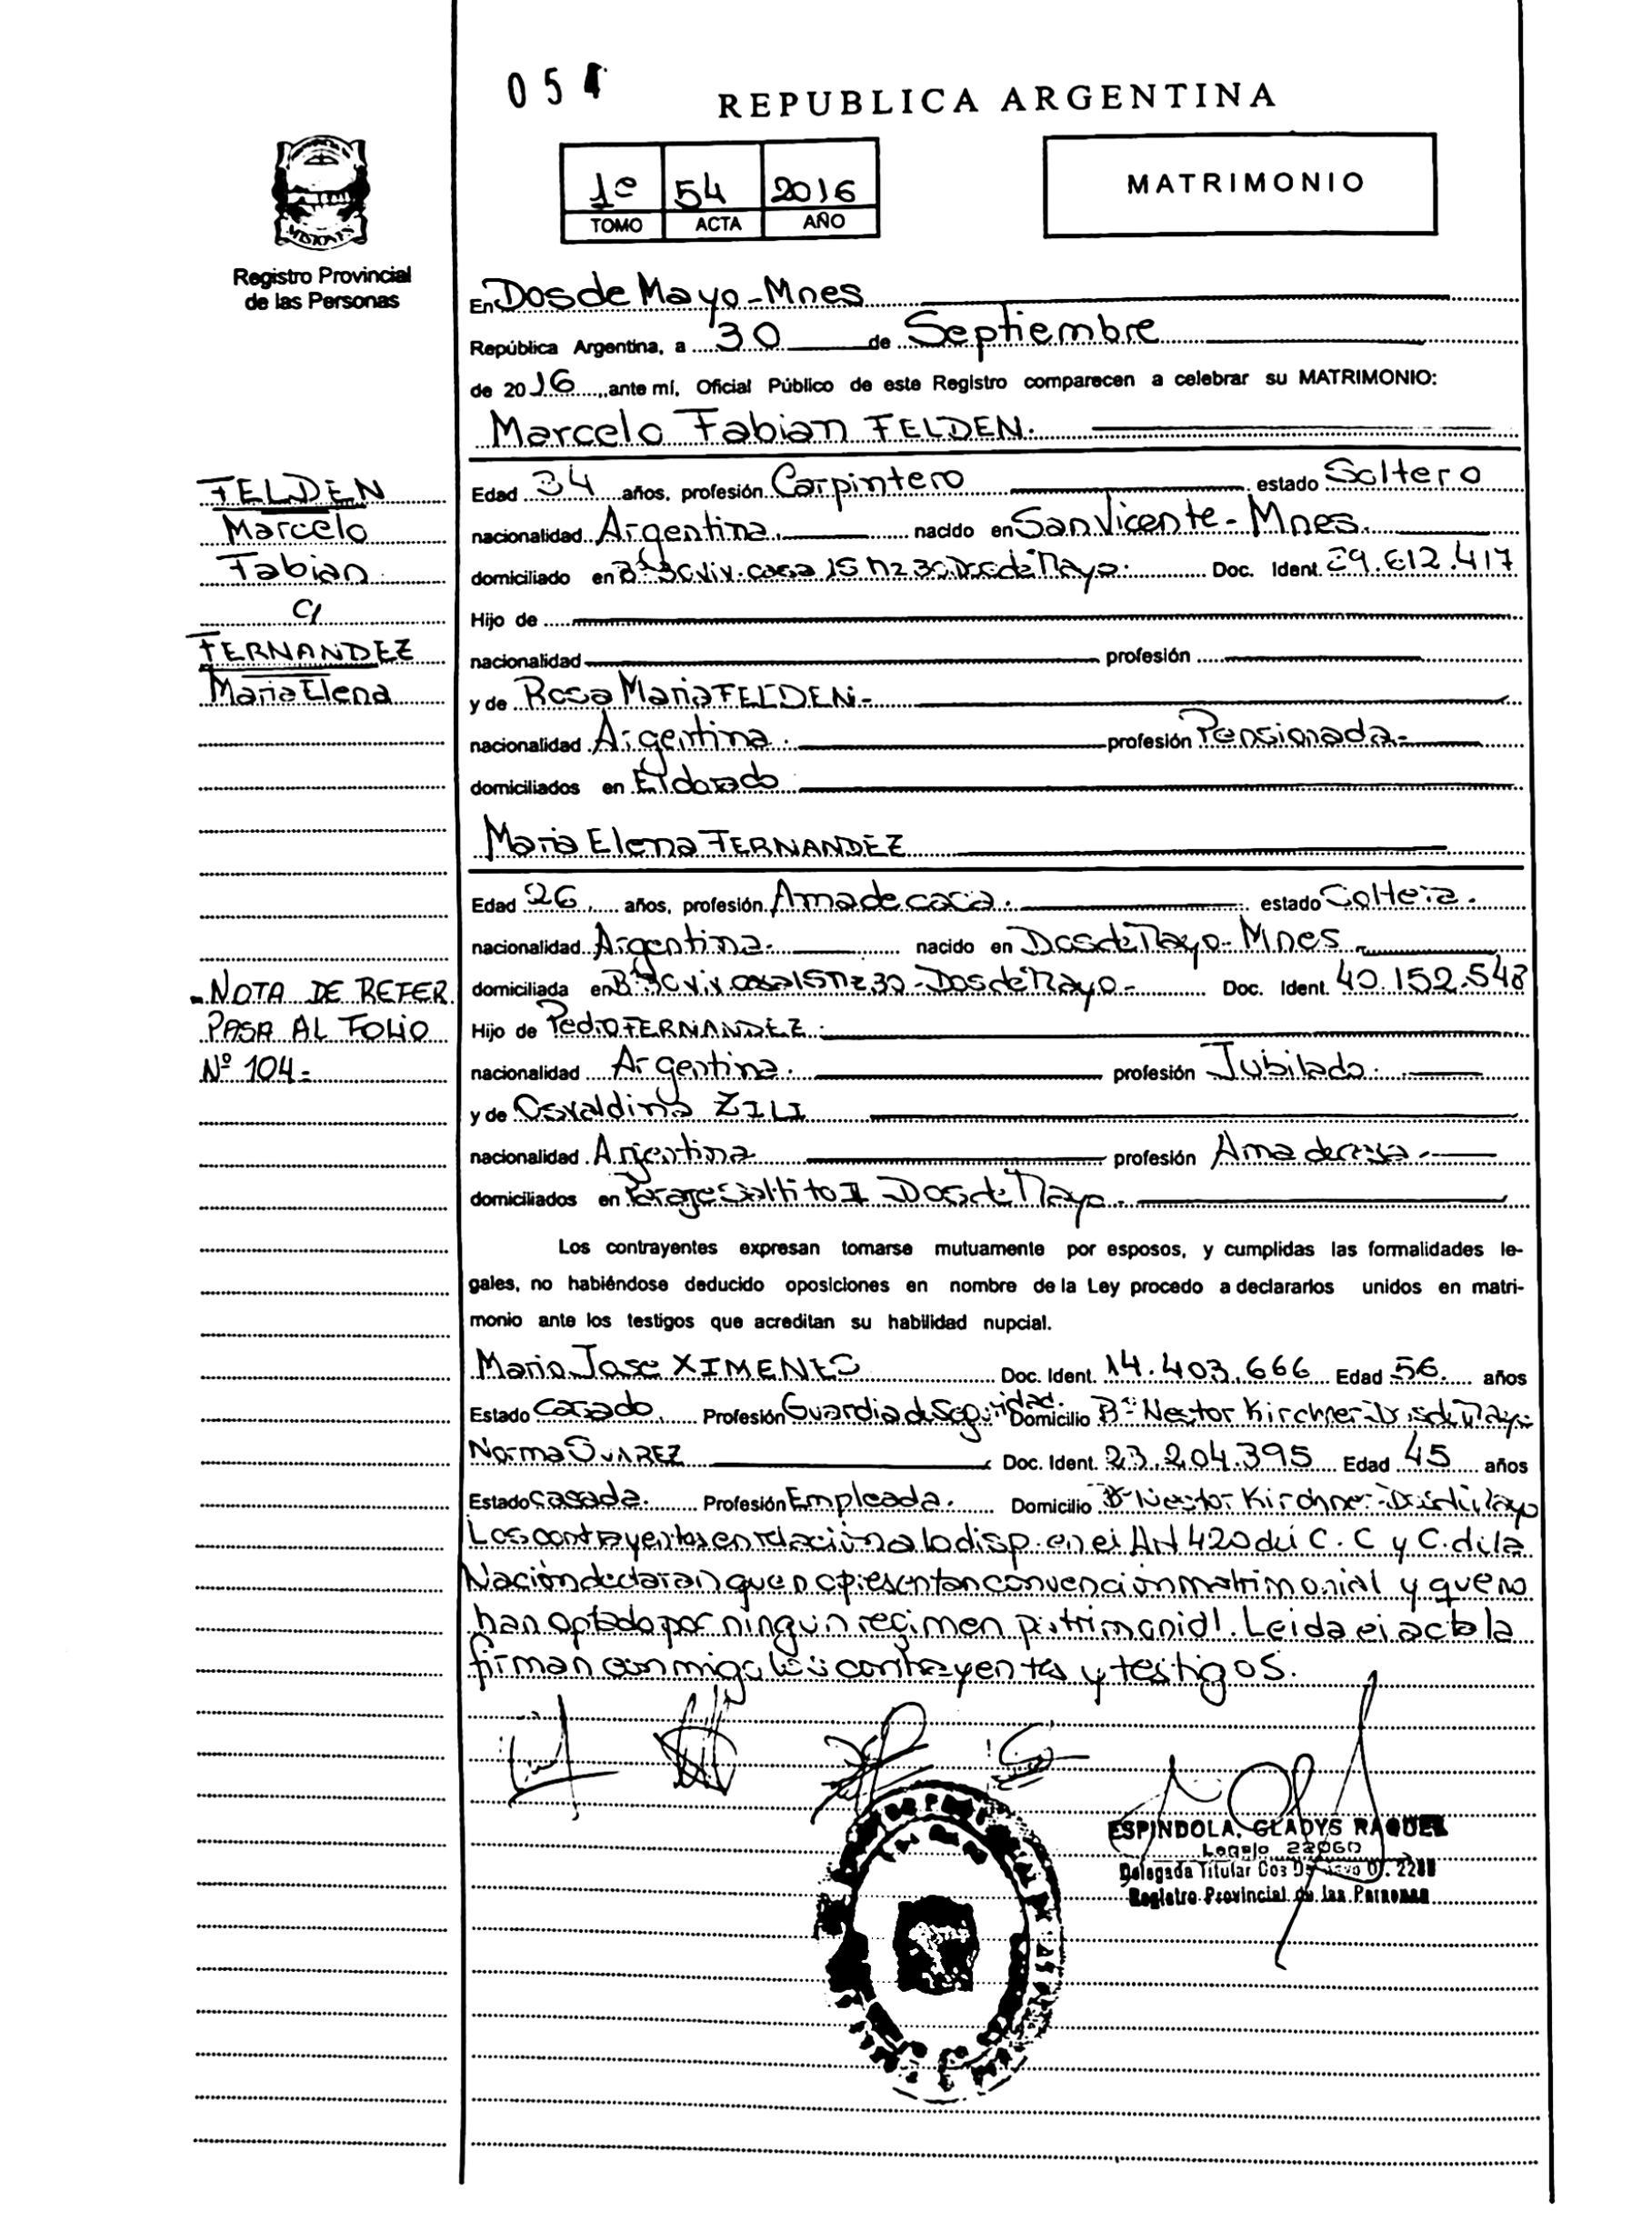 054
REPUBLICA ARGENTINA
1º 54 2016
TOMO ACTA AÑO
MATRIMONIO
MISIONES
Registro Provincial
de las Personas
En Dos de Mayo - Mnes
República Argentina, a 30 de Septiembre
de 2016, ante mí, Oficial Público de este Registro comparecen a celebrar su MATRIMONIO:
Marcelo Fabian FELDEN.
FELDEN
Marcelo
Fabian
c/
FERNANDEZ
Maria Elena
Edad 34 años, profesión Carpintero estado Soltero
nacionalidad Argentina. nacido en San Vicente - Mnes.
domiciliado en Bº Viv. casa 15 Mz 30 Dos de Mayo. Doc. Ident. 29.612.417
Hijo de
nacionalidad profesión
y de Rosa Maria FELDEN -
nacionalidad Argentina. profesión Pensionada -
domiciliados en Eldorado
Maria Elena FERNANDEZ
Edad 26, años, profesión Ama de casa. estado Soltera.
nacionalidad Argentina. nacido en Dos de Mayo - Mnes -
domiciliada en Bº viv casa 15 Mz 30 - Dos de Mayo - Doc. Ident. 40.152.548
Hijo de Pedro FERNANDEZ.
nacionalidad Argentina. profesión Jubilado.
y de Osvaldina ZILI
nacionalidad Argentina profesión Ama de casa.
domiciliados en Paraje Saltito II Dos de Mayo.
- NOTA DE REFER
PASA AL FOLIO
Nº 104 -
Los contrayentes expresan tomarse mutuamente por esposos, y cumplidas las formalidades le-
gales, no habiéndose deducido oposiciones en nombre de la Ley procedo a declararlos unidos en matri-
monio ante los testigos que acreditan su habilidad nupcial.
Mario Jose XIMENES Doc. Ident. 14.403.666 Edad 56. años
Estado Casado, Profesión Guardia de Seguridad. Domicilio Bº Nestor Kirchner - Dos de Mayo
Norma SUAREZ Doc. Ident. 23.204.395 Edad 45 años
Estado Casada. Profesión Empleada. Domicilio Bº Nestor Kirchner - Dos de Mayo
Los contrayentes en relación a lo disp. en el Art 420 del C. C y C. de la
Nación declaran que no presentan convención matrimonial y que no
han optado por ningun regimen patrimonial. Leida el acta la
firman conmigo los contrayentes y testigos.
ESPINDOLA, GLADYS RAQUEL
Legajo 22060
Delegada Titular Dos De Mayo
Registro Provincial de las Personas